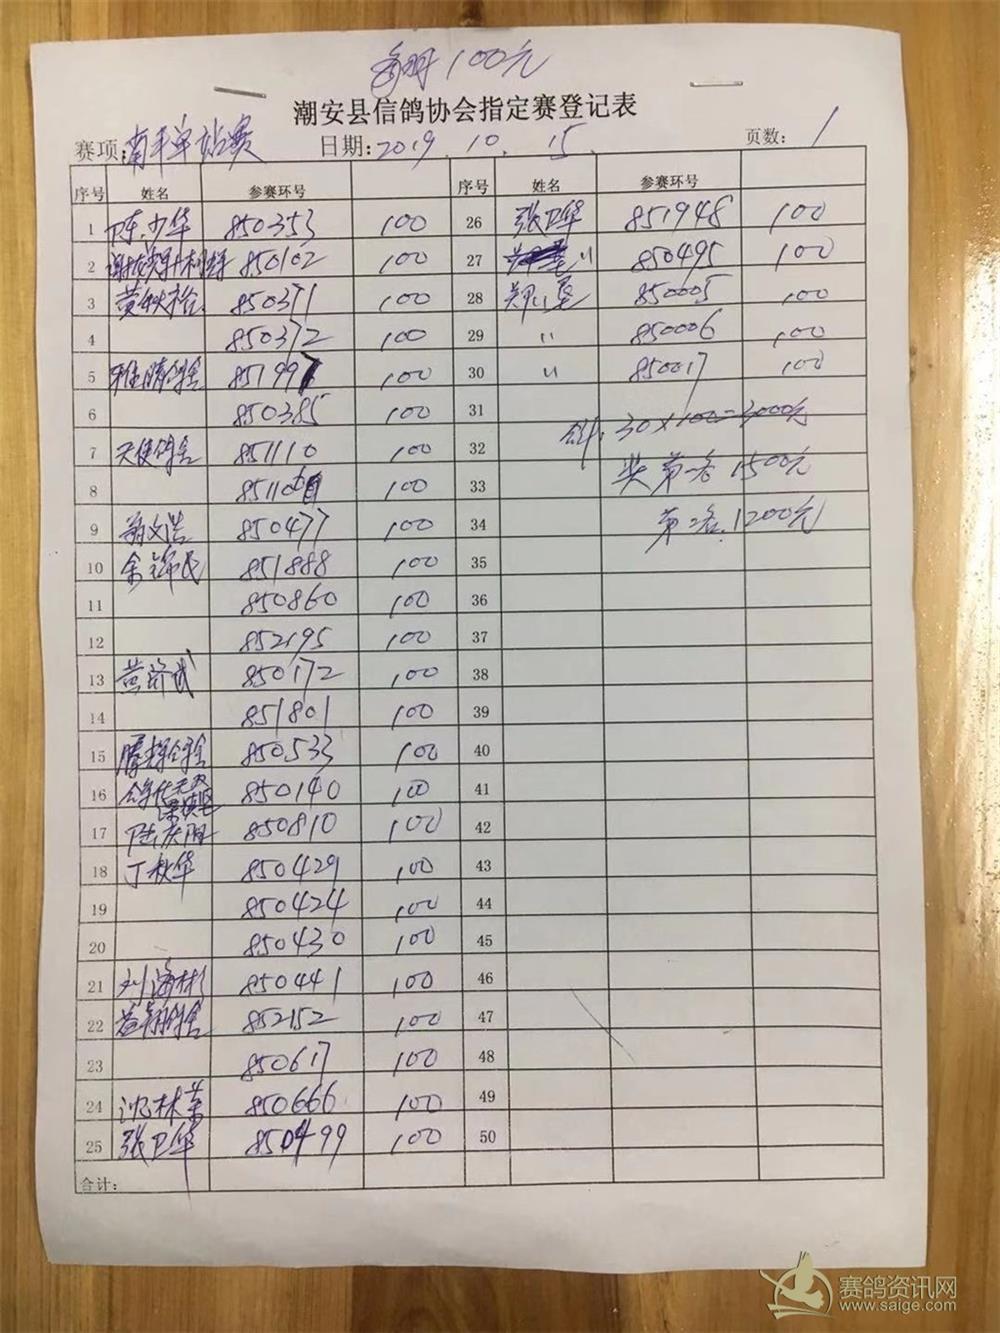 每羽100元
潮安县信鸽协会指定赛登记表
赛项:南平单站赛 日期:2019.10.15. 页数: 1
序号 姓名 参赛环号 序号 姓名 参赛环号
1 陈少华 850353 100 26 张卫华 851948 100
2 850102 100 27 〃 850495 100
3 850371 100 28 850005 100
4 850372 100 29 〃 850006 100
5 鸽舍 85199 100 30 〃 850017 100
6 850385 100 31 合计: 30×100=3000元
7 天使鸽舍 851110 100 32
8 85110 100 33 奖第一名 1500元
9 翁文浩 850477 100 34 第二名 1200元
10 余锦民 851888 100 35
11 850860 100 36
12 852195 100 37
13 黄济武 850172 100 38
14 851801 100 39
15 腾辉鸽舍 850533 100 40
16 850140 100 41
17 陈庆阳 850810 100 42
18 丁秋华 850429 100 43
19 850424 100 44
20 850430 100 45
21 刘海彬 850441 100 46
22 益翔鸽舍 852152 100 47
23 850617 100 48
24 沈林荣 850666 100 49
25 张卫华 850499 100 50
合计:
赛鸽资讯网
www.saige.com